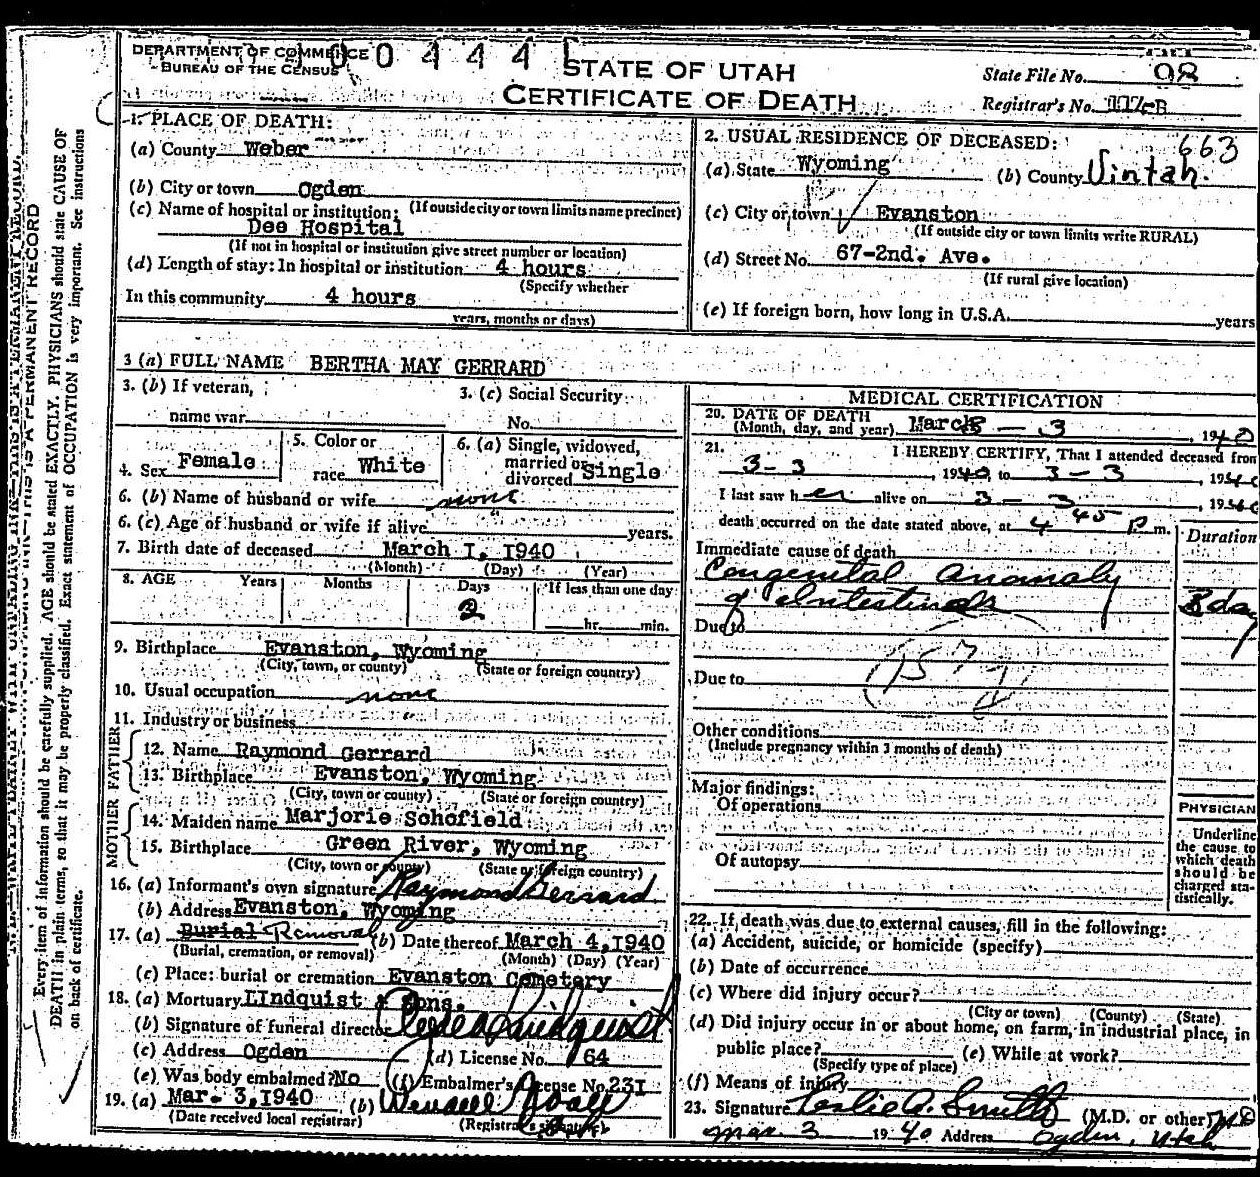 DEPARTMENT OF COMMERCE
BUREAU OF THE CENSUS
0 0 4 4 4
STATE OF UTAH
CERTIFICATE OF DEATH
State File No. 98
Registrar's No.
1. PLACE OF DEATH:
(a) County Weber
(b) City or town Ogden
(c) Name of hospital or institution: (If outside city or town limits name precinct)
Dee Hospital
(If not in hospital or institution give street number or location)
(d) Length of stay: In hospital or institution 4 hours
(Specify whether
In this community 4 hours
years, months or days)
2. USUAL RESIDENCE OF DECEASED: 663
(a) State Wyoming (b) County Uintah.
(c) City or town Evanston
(If outside city or town limits write RURAL)
(d) Street No. 67-2nd. Ave.
(If rural give location)
(e) If foreign born, how long in U.S.A. years
3 (a) FULL NAME BERTHA MAY GERRARD
3. (b) If veteran,
name war
3. (c) Social Security
No.
4. Sex Female
5. Color or
race White
6. (a) Single, widowed,
married or
divorced Single
6. (b) Name of husband or wife none
6. (c) Age of husband or wife if alive years.
7. Birth date of deceased March 1, 1940
(Month) (Day) (Year)
8. AGE Years Months Days If less than one day
2 hr. min.
9. Birthplace Evanston, Wyoming
(City, town, or county) (State or foreign country)
10. Usual occupation none
11. Industry or business
FATHER
12. Name Raymond Gerrard
13. Birthplace Evanston, Wyoming
(City, town or county) (State or foreign country)
MOTHER
14. Maiden name Marjorie Schofield
15. Birthplace Green River, Wyoming
(City, town or county) (State or foreign country)
16. (a) Informant's own signature Raymond Gerrard
(b) Address Evanston, Wyoming
17. (a) Burial Removal (b) Date thereof March 4, 1940
(Burial, cremation, or removal) (Month) (Day) (Year)
(c) Place: burial or cremation Evanston Cemetery
18. (a) Mortuary LIndquist & Sons.
(b) Signature of funeral director Lindquist
(c) Address Ogden (d) License No. 64
(e) Was body embalmed? No (f) Embalmer's License No. 231
19. (a) Mar. 3, 1940 (b)
(Date received local registrar) (Registrar's signature)
MEDICAL CERTIFICATION
20. DATE OF DEATH
(Month, day, and year) March - 3, 1940
21. I HEREBY CERTIFY, That I attended deceased from
3-3, 1940, to 3-3, 1940
I last saw her alive on 3-3, 1940
death occurred on the date stated above, at 4 45 P m.
Duration
Immediate cause of death
Congenital anomaly
of Intestines 3 day
Due to
Due to
157
Other conditions
(Include pregnancy within 3 months of death)
Major findings:
Of operations
Of autopsy
PHYSICIAN
Underline
the cause to
which death
should be
charged sta-
tistically.
22. If death was due to external causes, fill in the following:
(a) Accident, suicide, or homicide (specify)
(b) Date of occurrence
(c) Where did injury occur?
(City or town) (County) (State)
(d) Did injury occur in or about home, on farm, in industrial place, in
public place? (e) While at work?
(Specify type of place)
(f) Means of injury
23. Signature Leslie A. Smith (M.D. or other) MD
Mar. 3 1940 Address Ogden, Utah
Every item of information should be carefully supplied. AGE should be stated EXACTLY. PHYSICIANS should state CAUSE OF
DEATH in plain terms, so that it may be properly classified. Exact statement of OCCUPATION is very important. See instructions
on back of certificate.